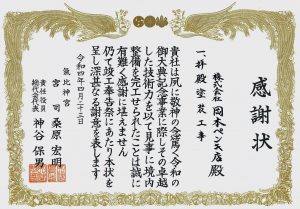 感謝状
株式会社 岡本ペンキ店 殿
一、拝殿塗装工事
貴社は夙に敬神の念篤く令和の
御大典記念事業に際しその卓越
した技術力を以て見事に境内
整備を完工せられたことは誠に
有難く感謝に堪えません
仍て竣工奉告祭にあたり本状を
呈し深甚なる謝意を表します
令和四年四月二十三日
氣比神宮
宮司 桑原宏明
責任役員
総代会代表 神谷保男